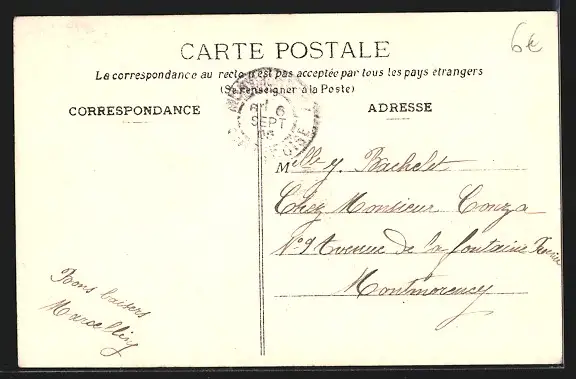 6€
CARTE POSTALE
La correspondance au recto n'est pas acceptée par tous les pays étrangers
(Se renseigner à la Poste)
CORRESPONDANCE
ADRESSE
6 SEPT
OISE
Melle Y. Bachelet
Chez Monsieur Conza
N°9 Avenue de la fontaine
Montmorency
Bons baisers
Marcelling